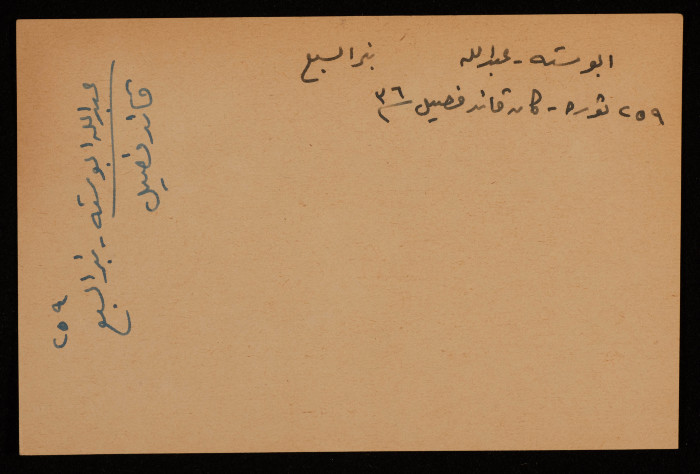 ابو سته - عبدالله بئر السبع
٢٥٩ ثوره - كان قائد فصيل ٣٦
عبدالله ابو سته - بئر السبع
قائد فصيل
٢٥٩